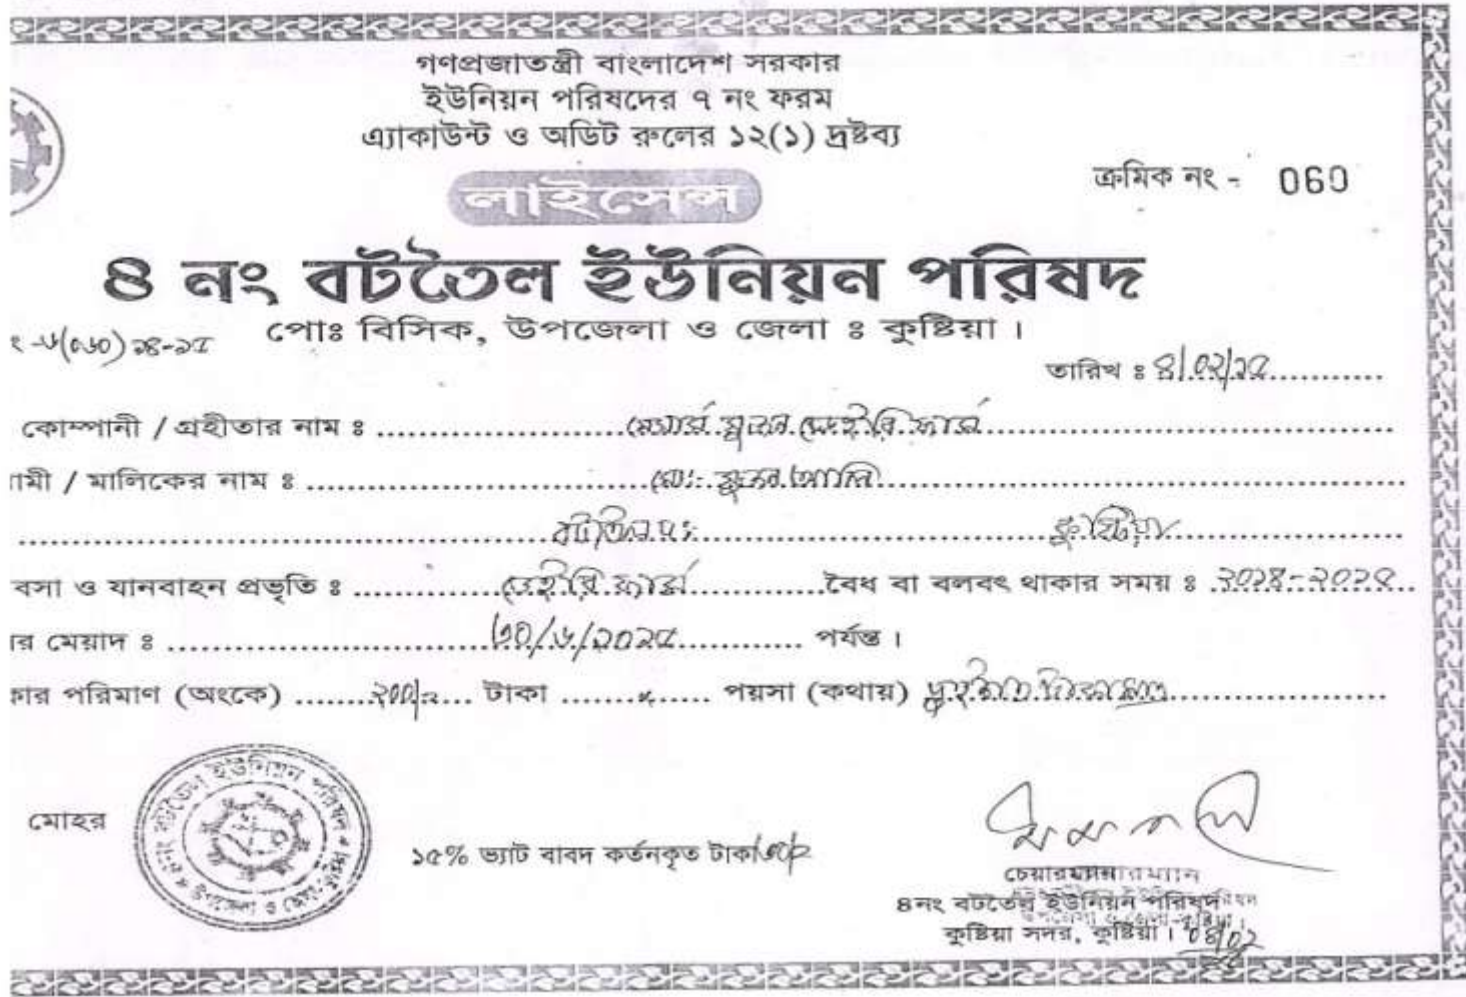 গণপ্রজাতন্ত্রী বাংলাদেশ সরকার
ইউনিয়ন পরিষদের ৭ নং ফরম
এ্যাকাউন্ট ও অডিট রুলের ১২(১) দ্রষ্টব্য
ক্রমিক নং - 060
লাইসেন্স
৪ নং বটতৈল ইউনিয়ন পরিষদ
পোঃ বিসিক, উপজেলা ও জেলা ঃ কুষ্টিয়া।
ং -৬(০৬০) ২৪-২৫
তারিখ ঃ ৪/০২/২৫
কোম্পানী / গ্রহীতার নাম ঃ মেসার্স ডেইরি ফার্ম
ামী / মালিকের নাম ঃ মোঃ আলি
বটতৈল কুষ্টিয়া
বসা ও যানবাহন প্রভৃতি ঃ ডেইরি ফার্ম বৈধ বা বলবৎ থাকার সময় ঃ ২০২৪-২০২৫
ার মেয়াদ ঃ ৩০/৬/২০২৫ পর্যন্ত।
কার পরিমাণ (অংকে) ২০০/= টাকা × পয়সা (কথায়) দুইশত টাকা মাত্র
মোহর
১৫% ভ্যাট বাবদ কর্তনকৃত টাকা
চেয়ারম্যান
৪নং বটতৈল ইউনিয়ন পরিষদ
কুষ্টিয়া সদর, কুষ্টিয়া।